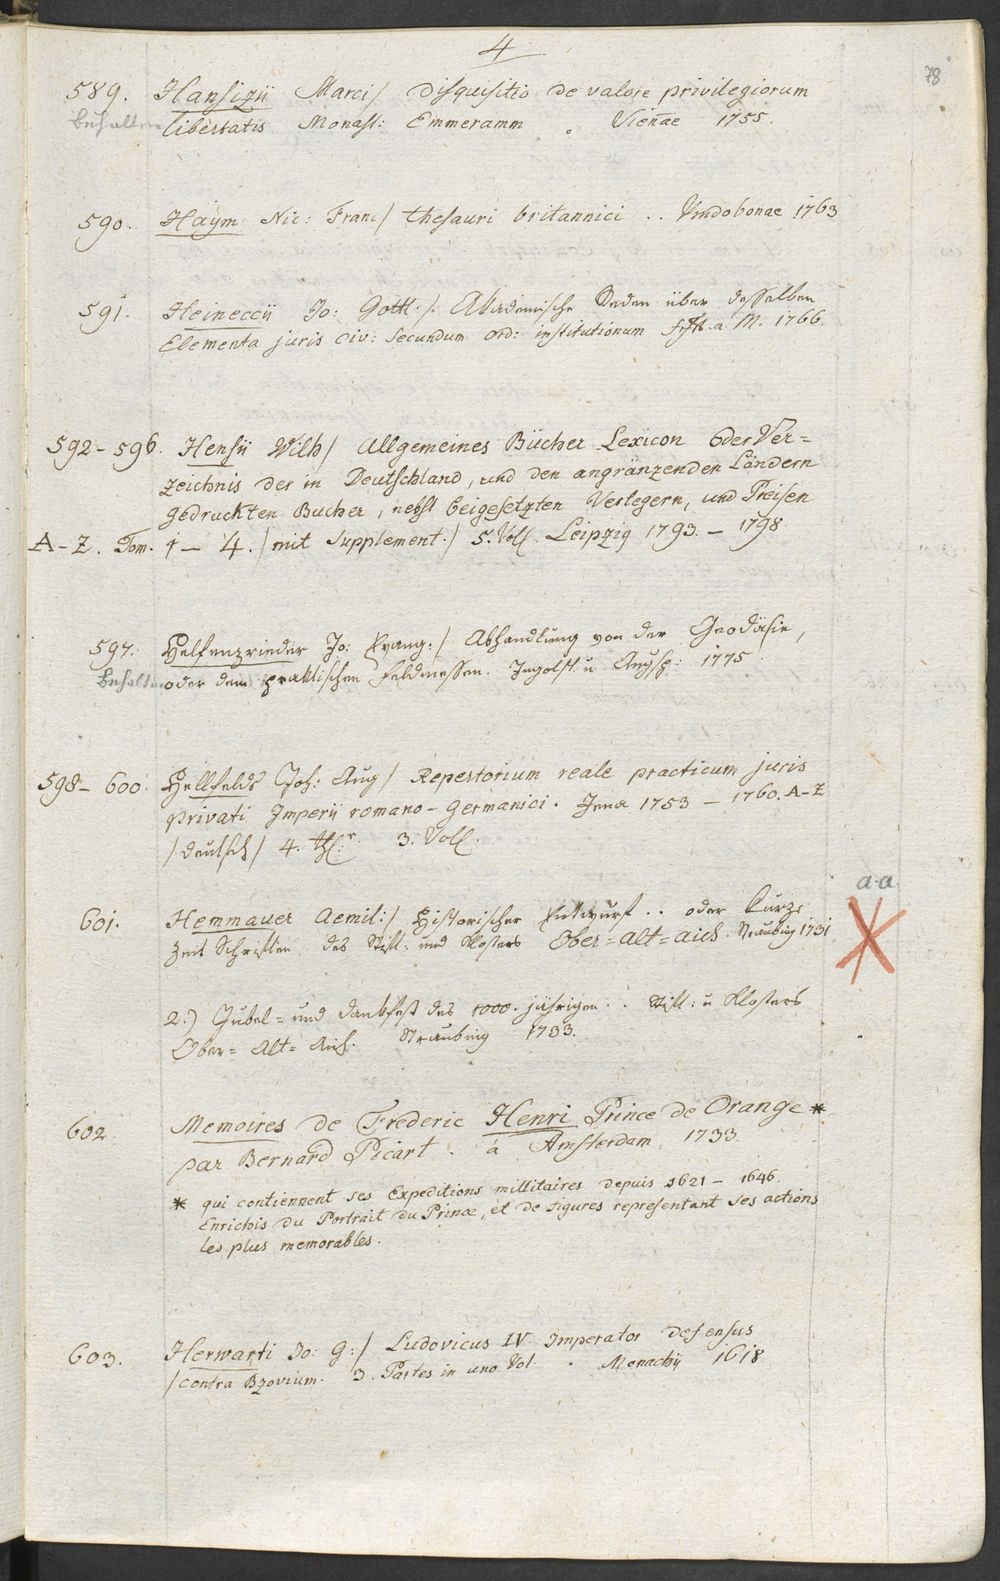 4
78
589. Hansizii Marci/ disquisitio de valore privilegiorum
behalten libertatis Monast: Emmeramm . Vienae 1755.
590. Haym Nic: Franc/ thesauri britannici .. Vindobonae 1763
591. Heineccii Jo: Gottl./. Akademische Reden über desselben
Elementa juris civ: secundum ord: institutionum Frft. a. M. 1766
592-596. Hensii Wilh/ Allgemeines Bücher Lexicon oder Ver=
zeichnis der in Deutschland, und den angränzenden Ländern
gedruckten Bucher, nebst beigesetzten Verlegern, und Preisen
A-Z. Tom. 1 – 4. /mit Supplement./ 5. Voll. Leipzig 1793. – 1798.
597. Helfenzrieder Jo: Evang:/ Abhandlung von der Geodäsie,
behalten oder dem praktischen Feldmessen. Ingolst. u Augsp: 1775.
598– 600. Hellfelds Joh: Aug/ Repertorium reale practicum juris
privati Imperii romano-Germanici. Jena 1753 – 1760. A-Z
/deutsch/ 4. Thl. 3. Voll.
a-a
601. Hemmauer Aemil:/ Historischer Entwurf .. oder Kurze
Zeit Schriften des Stift: und Klosters Ober=alt=aich. Straubing 1731
2.) Jubel= und Dankfest des 1000. jährigen .. Stift: u Klosters
Ober= Alt= Aich. Straubing 1733.
602. Memoires de Frederic Henri Prince de Orange *
par Bernard Picart . á Amsterdam 1733.
* qui contiennent ses Expeditions millitaires depuis 1621 – 1646.
Enrichis du Portrait du Prince, et de figures representant ses actions
les plus memorables.
603. Herwarti Jo: G:/ Ludovicus IV. Imperator defensus
/contra Bzovium. 3. Partes in uno Vol. . Monachij 1618